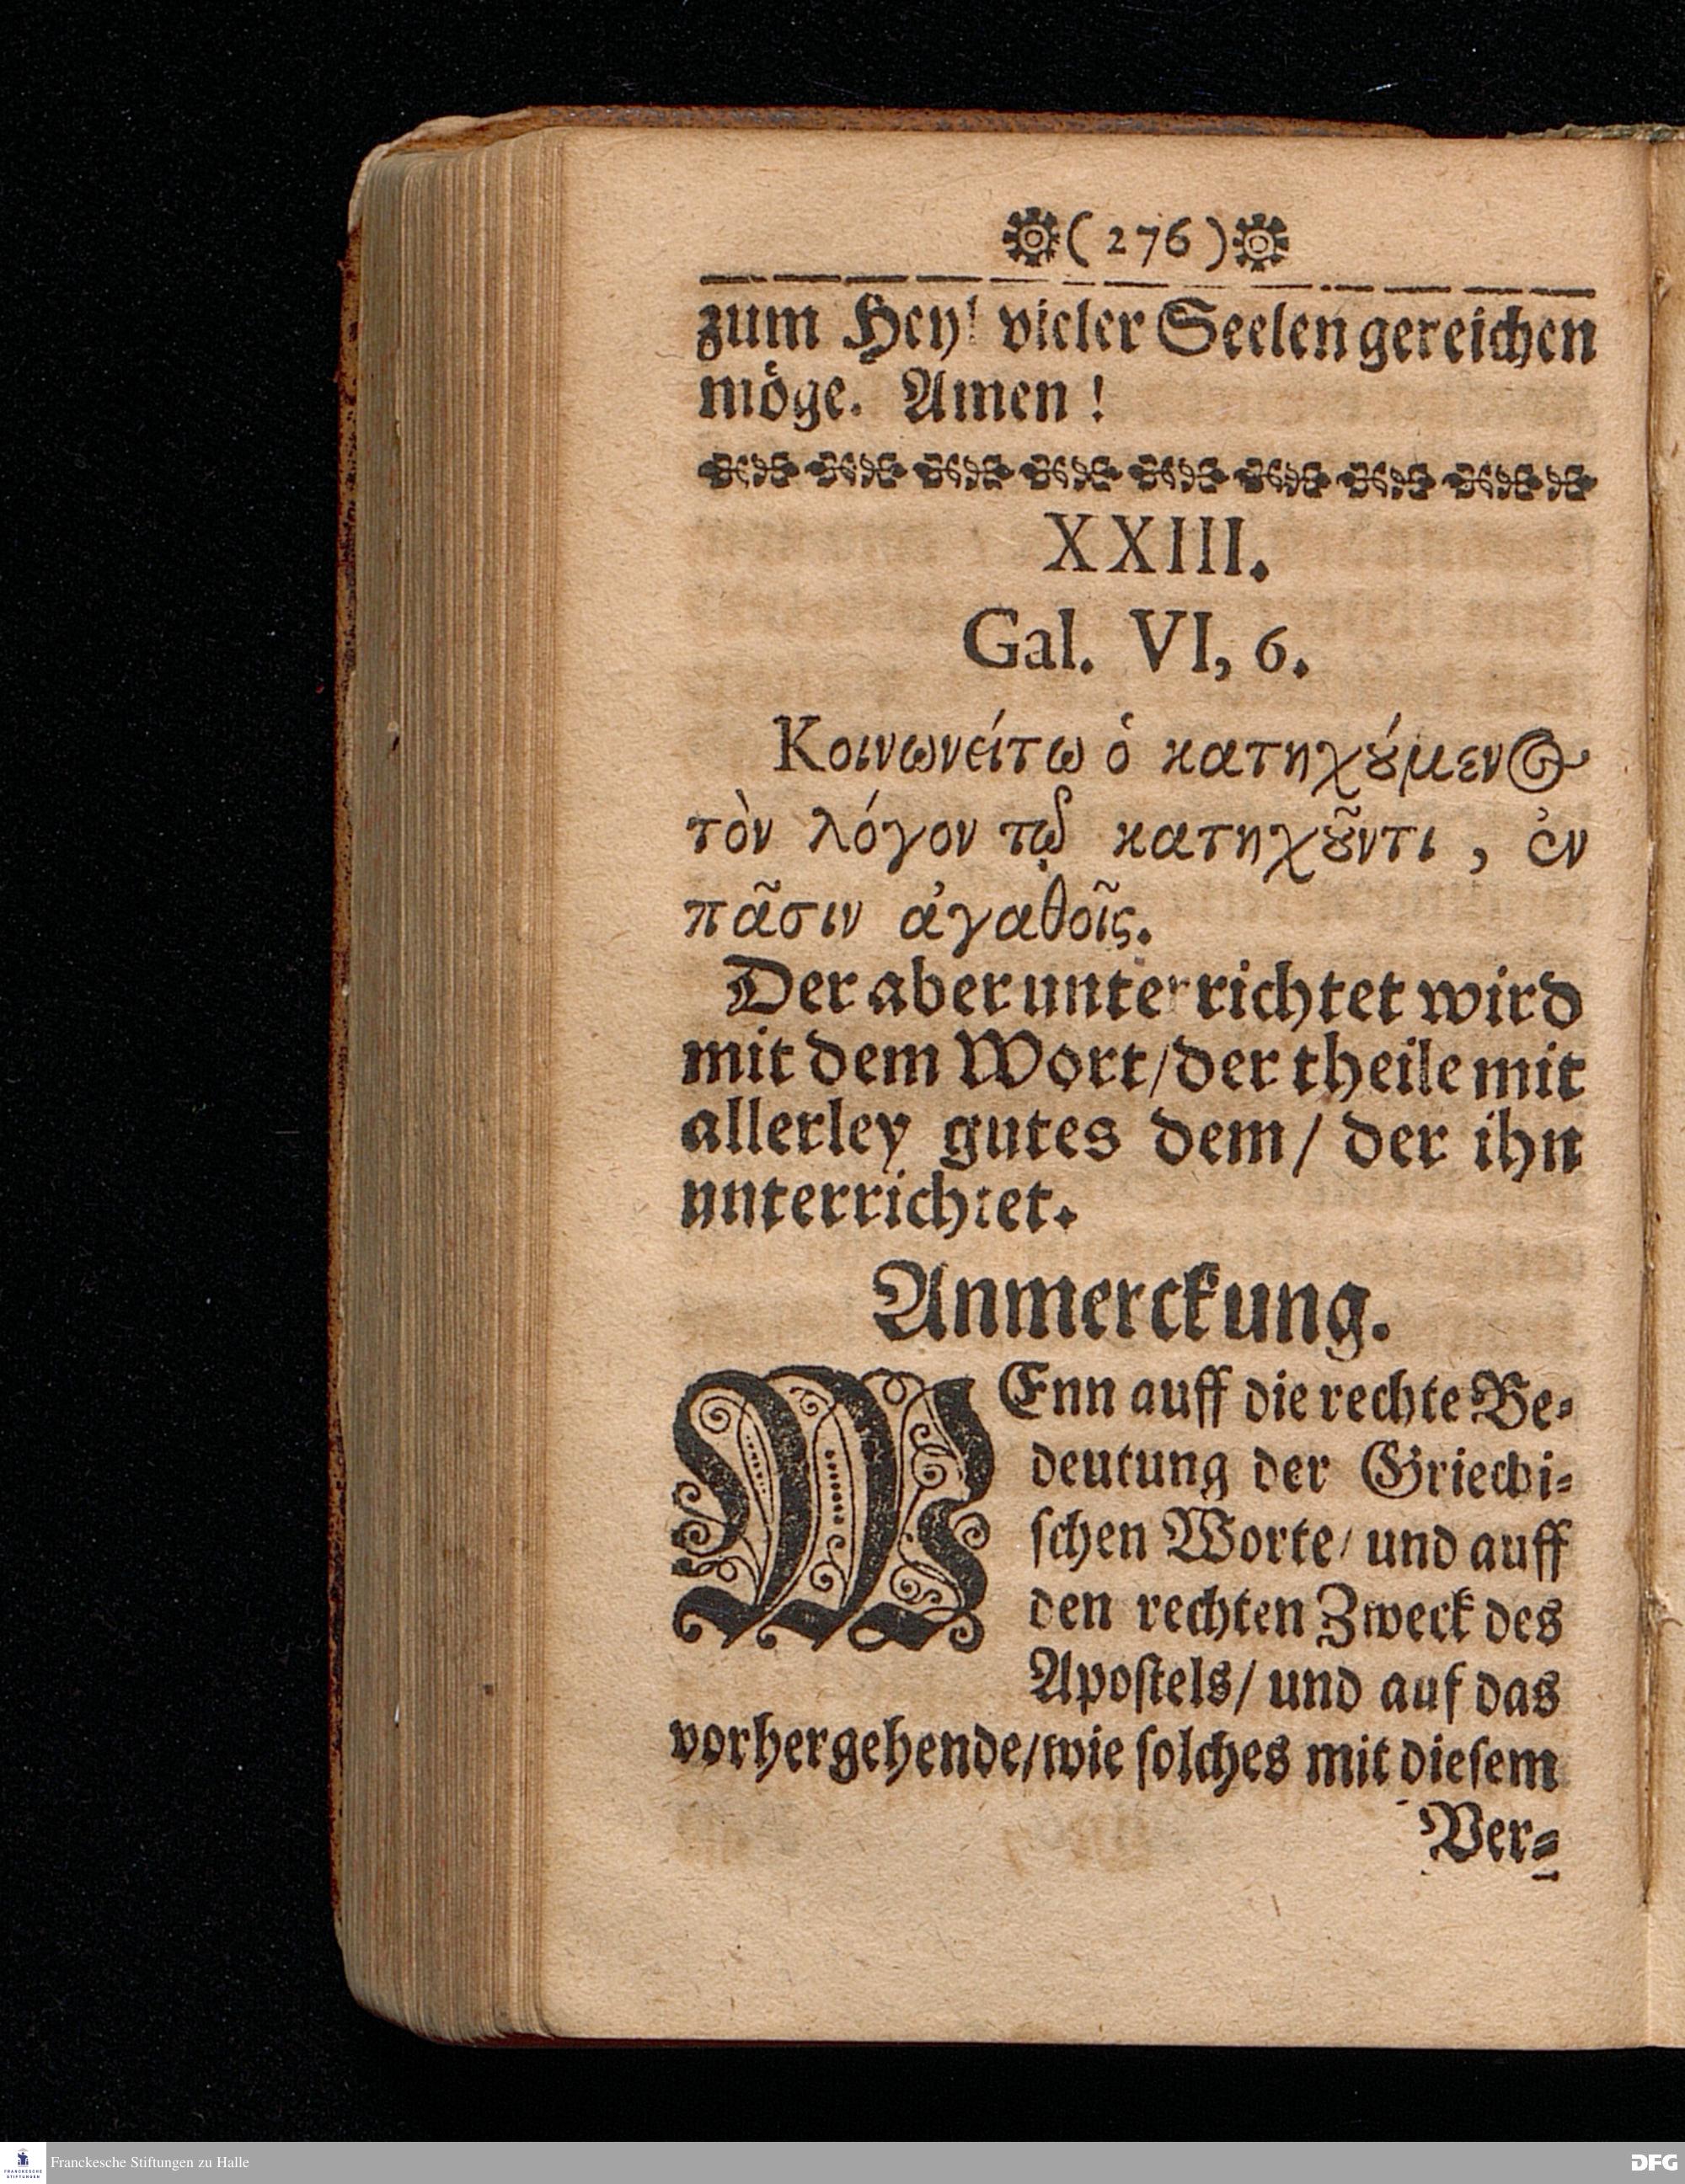 (276)
zum Heyl vieler Seelen gereichen
möge. Amen!
XXIII.
Gal. VI, 6.
Κοινωνείτω ὁ κατηχȣ́μενος
τὸν λόγον τῷ κατηχȣ͂ντι, ἐν
πᾶσιν ἀγαθοῖς.
Der aber unterrichtet wird
mit dem Wort/der theile mit
allerley gutes dem/ der ihn
unterrichtet.
Anmerckung.
WEnn auff die rechte Be-
deutung der Griechi-
ſchen Worte/ und auff
den rechten Zweck des
Apoſtels/ und auf das
vorhergehende/wie ſolches mit dieſem
Ver-
FRANCKESCHE STIFTUNGEN
Franckesche Stiftungen zu Halle
DFG